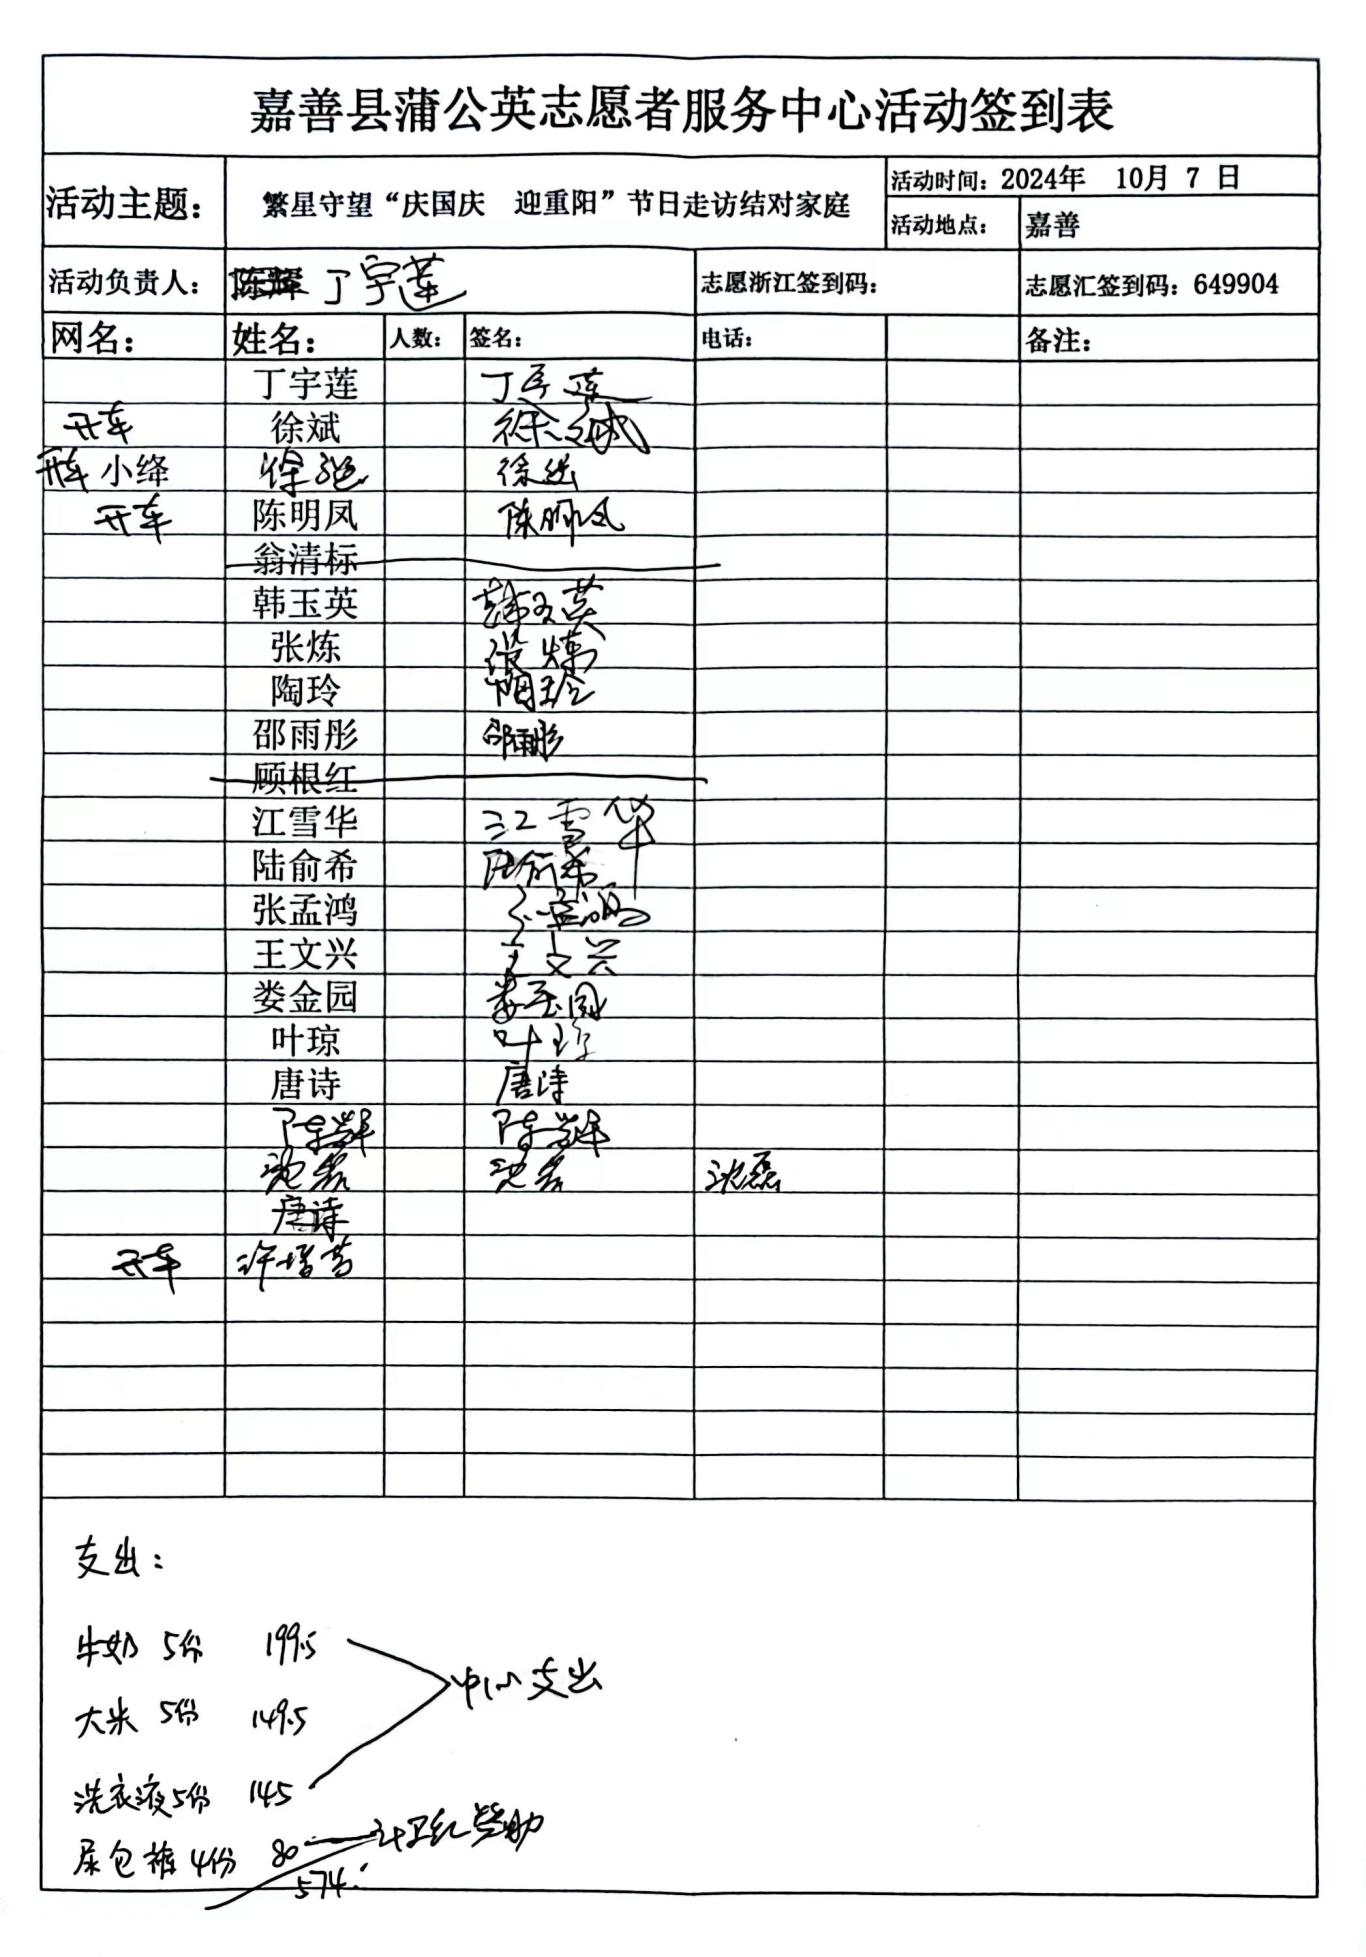 嘉善县蒲公英志愿者服务中心活动签到表
活动主题： 繁星守望“庆国庆 迎重阳”节日走访结对家庭 活动时间：2024年 10月 7 日
活动地点： 嘉善
活动负责人： 陈辉 丁宇莲 志愿浙江签到码： 志愿汇签到码：649904
网名： 姓名： 人数： 签名： 电话： 备注：
丁宇莲 丁宇莲
开车 徐斌 徐斌
开车 小绛 徐
陈明凤 陈明凤
开车
翁清标
韩玉英 韩玉英
张炼 张炼
陶玲 陶玲
邵雨彤 邵雨彤
顾根红
江雪华 江雪华
陆俞希 陆俞希
张孟鸿 张孟鸿
王文兴 王文兴
娄金园 娄金园
叶琼 叶琼
唐诗 唐诗
陈辉 陈辉
沈磊 沈磊 沈磊
唐诗
开车 许
支出：
牛奶 5份 199.5
中心支出
大米 5份 149.5
洗衣液5份 145
尿包裤 4份 80 赞助
574.